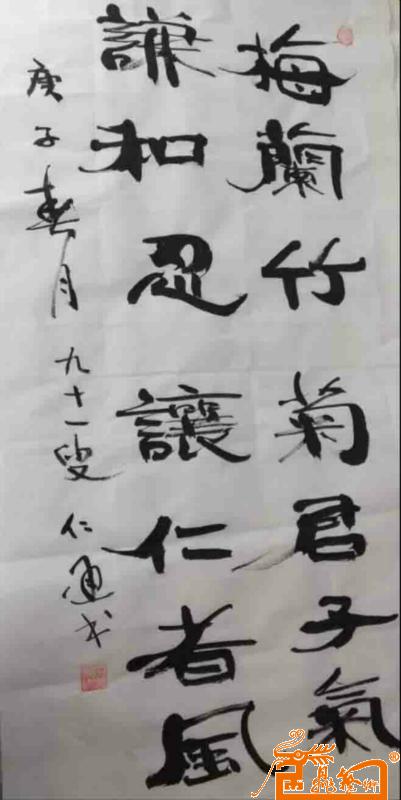 梅蘭竹菊君子氣
謙和忍讓仁者風
庚子春月九十一叟仁通书